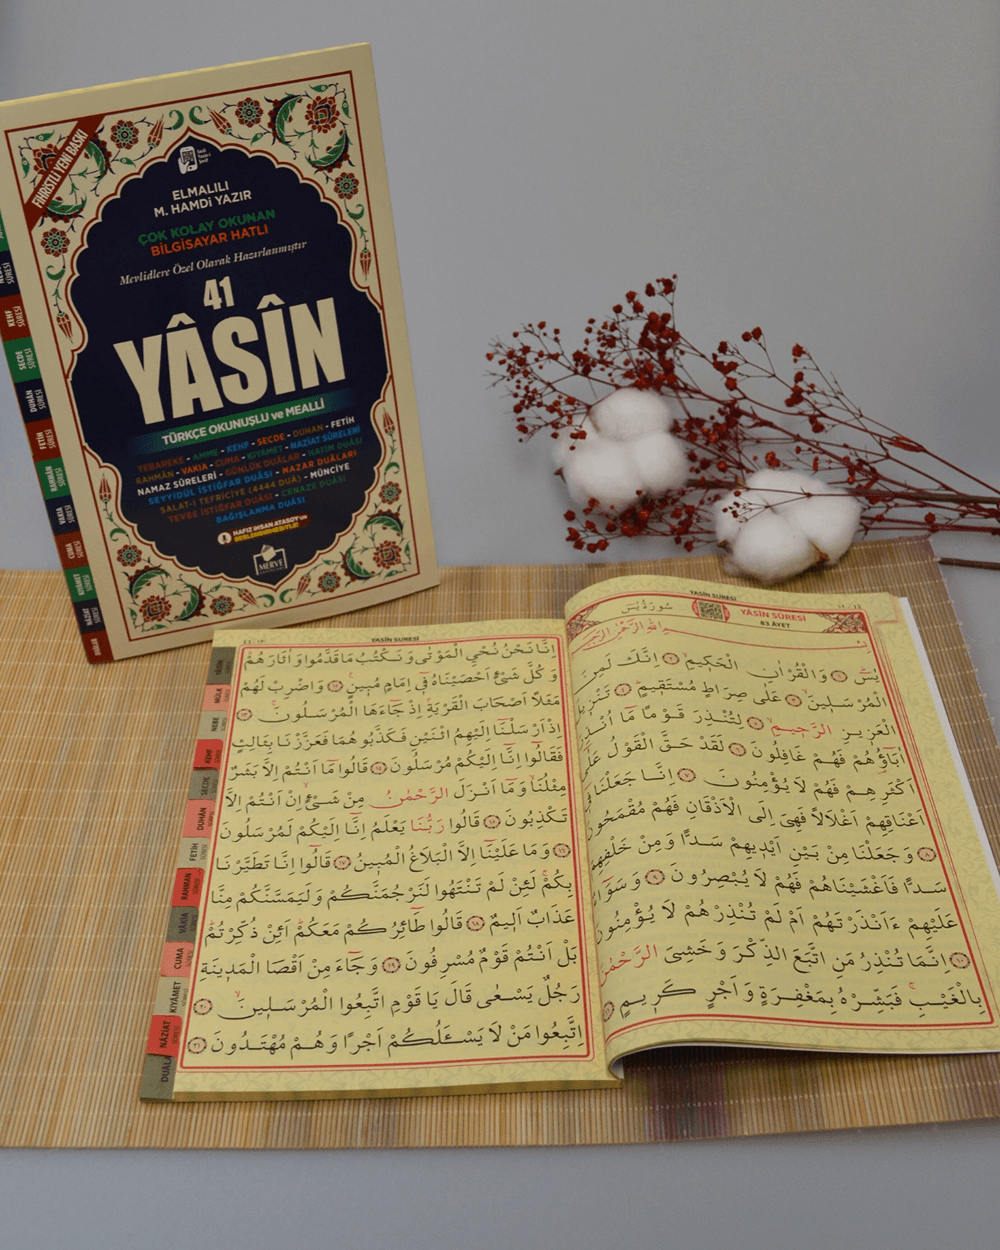 FİHRİSTLİ YENİ BASKI
Sesli
Yasin-i
Şerif
ELMALILI
M. HAMDİ YAZIR
ÇOK KOLAY OKUNAN
BİLGİSAYAR HATLI
Mevlidlere Özel Olarak Hazırlanmıştır
41
YÂSÎN
TÜRKÇE OKUNUŞLU ve MEALLİ
TEBAREKE - AMME - KEHF - SECDE - DUHAN - FETİH
RAHMÂN - VAKIA - CUMA - KIYAMET - NAZİAT SÛRELERİ
NAMAZ SÛRELERİ - GÜNLÜK DUÂLAR - HATİM DUÂSI
SEYYİDÜL İSTİĞFAR DUÂSI - NAZAR DUÂLARI
SALAT-I TEFRİCİYE (4444 DUÂ) - MÜNCİYE
TEVBE İSTİĞFAR DUÂSI - CENAZE DUÂSI
BAĞIŞLANMA DUÂSI
HAFIZ İHSAN ATASOY'un
SESLENDİRMESİYLE!
MERVE
KEHF
SÛRESİ
SECDE
SÛRESİ
DUHÂN
SÛRESİ
FETİH
SÛRESİ
RAHMÂN
SÛRESİ
VAKIA
SÛRESİ
CUMA
SÛRESİ
KIYÂMET
SÛRESİ
NÂZİAT
SÛRESİ
DUALAR
YASİN SURESİ
سُورَةُ يٰسٓ
YÂSİN SÛRESİ
83 ÂYET
يٰسٓ ﴿١﴾ وَالْقُرْاٰنِ الْحَكِيمِ ﴿٢﴾ اِنَّكَ لَمِنَ
الْمُرْسَلِينَ ﴿٣﴾ عَلٰى صِرَاطٍ مُسْتَقِيمٍ ﴿٤﴾ تَنْزِيلَ
الْعَزِيزِ الرَّحِيمِ ﴿٥﴾ لِتُنْذِرَ قَوْمًا مَٓا اُنْذِرَ
اٰبَٓاؤُ۬هُمْ فَهُمْ غَافِلُونَ ﴿٦﴾ لَقَدْ حَقَّ الْقَوْلُ عَلٰٓى
اَكْثَرِهِمْ فَهُمْ لَا يُؤْمِنُونَ ﴿٧﴾ اِنَّا جَعَلْنَا فِٓي
اَعْنَاقِهِمْ اَغْلَالًا فَهِيَ اِلَى الْاَذْقَانِ فَهُمْ مُقْمَحُونَ
﴿٨﴾ وَجَعَلْنَا مِنْ بَيْنِ اَيْدِيهِمْ سَدًّا وَمِنْ خَلْفِهِمْ
سَدًّا فَاَغْشَيْنَاهُمْ فَهُمْ لَا يُبْصِرُونَ ﴿٩﴾ وَسَوَٓاءٌ
عَلَيْهِمْ ءَاَنْذَرْتَهُمْ اَمْ لَمْ تُنْذِرْهُمْ لَا يُؤْمِنُونَ
﴿١٠﴾ اِنَّمَا تُنْذِرُ مَنِ اتَّبَعَ الذِّكْرَ وَخَشِيَ الرَّحْمٰنَ
بِالْغَيْبِۚ فَبَشِّرْهُ بِمَغْفِرَةٍ وَاَجْرٍ كَرِيمٍ ﴿١١﴾
YASİN SURESİ
اِنَّا نَحْنُ نُحْيِ الْمَوْتٰى وَنَكْتُبُ مَا قَدَّمُوا وَاٰثَارَهُمْ
وَكُلَّ شَيْءٍ اَحْصَيْنَاهُ فِٓي اِمَامٍ مُبِينٍ ﴿١٢﴾ وَاضْرِبْ لَهُمْ
مَثَلًا اَصْحَابَ الْقَرْيَةِۢ اِذْ جَٓاءَهَا الْمُرْسَلُونَۚ ﴿١٣﴾
اِذْ اَرْسَلْنَٓا اِلَيْهِمُ اثْنَيْنِ فَكَذَّبُوهُمَا فَعَزَّزْنَا بِثَالِثٍ
فَقَالُٓوا اِنَّٓا اِلَيْكُمْ مُرْسَلُونَ ﴿١٤﴾ قَالُوا مَٓا اَنْتُمْ اِلَّا بَشَرٌ
مِثْلُنَاۙ وَمَٓا اَنْزَلَ الرَّحْمٰنُ مِنْ شَيْءٍۙ اِنْ اَنْتُمْ اِلَّا
تَكْذِبُونَ ﴿١٥﴾ قَالُوا رَبُّنَا يَعْلَمُ اِنَّٓا اِلَيْكُمْ لَمُرْسَلُونَ
﴿١٦﴾ وَمَا عَلَيْنَٓا اِلَّا الْبَلَاغُ الْمُبِينُ ﴿١٧﴾ قَالُٓوا اِنَّا تَطَيَّرْنَا
بِكُمْۚ لَئِنْ لَمْ تَنْتَهُوا لَنَرْجُمَنَّكُمْ وَلَيَمَسَّنَّكُمْ مِنَّا
عَذَابٌ اَلِيمٌ ﴿١٨﴾ قَالُوا طَٓائِرُكُمْ مَعَكُمْۜ اَئِنْ ذُكِّرْتُمْۜ
بَلْ اَنْتُمْ قَوْمٌ مُسْرِفُونَ ﴿١٩﴾ وَجَٓاءَ مِنْ اَقْصَا الْمَدِينَةِ
رَجُلٌ يَسْعٰى قَالَ يَا قَوْمِ اتَّبِعُوا الْمُرْسَلِينَۙ ﴿٢٠﴾
اِتَّبِعُوا مَنْ لَا يَسْـَٔلُكُمْ اَجْرًا وَهُمْ مُهْتَدُونَ ﴿٢١﴾
YÂSİN
MÜLK
NEBE
KEHF
SECDE
DUHÂN
FETİH
RAHMAN
VÂKIA
CUMA
KIYÂMET
NÂZİAT
DUALAR